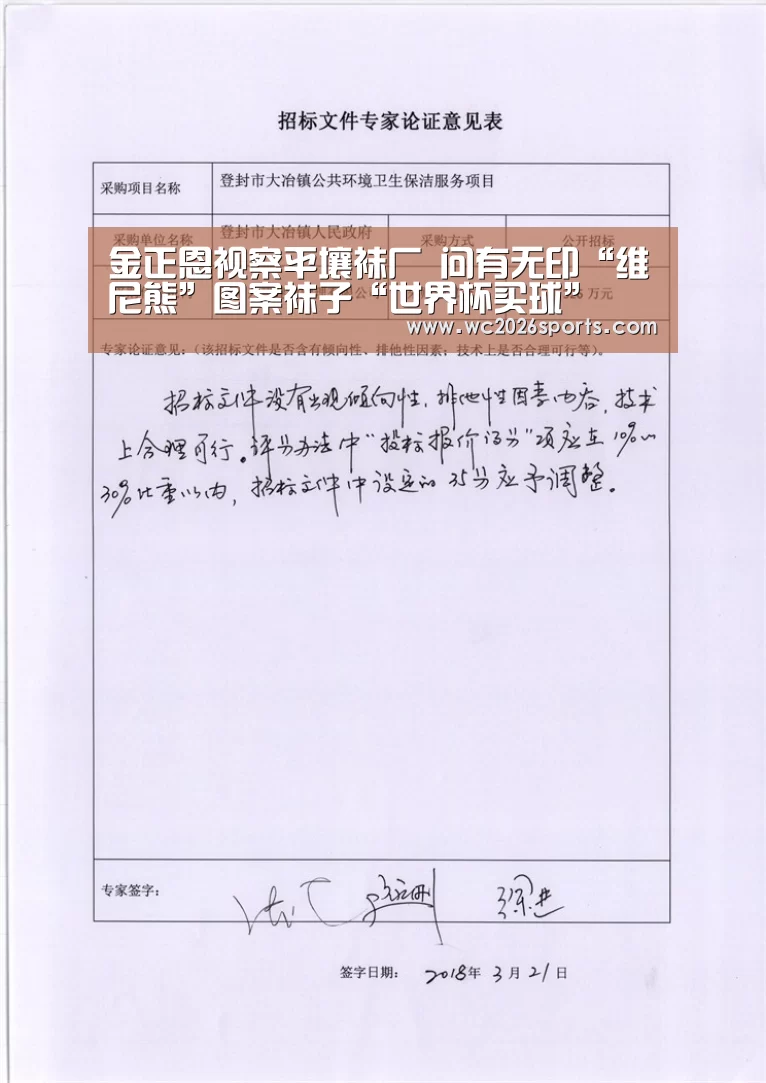 招标文件专家论证意见表
采购项目名称 登封市大冶镇公共环境卫生保洁服务项目
采购单位名称 登封市大冶镇人民政府 采购方式 公开招标
金正恩视察平壤袜厂 问有无印“维
尼熊”图案袜子“世界杯买球”
万元
www.wc2026sports.com
专家论证意见:(该招标文件是否含有倾向性、排他性因素;技术上是否合理可行等)。
招标文件没有出现倾向性,排他性因素内容,技术
上合理可行。评分办法中“投标报价得分”项应在10%以
30%比重以内,招标文件中设定的35分应予调整。
专家签字:
签字日期: 2018年3月21日